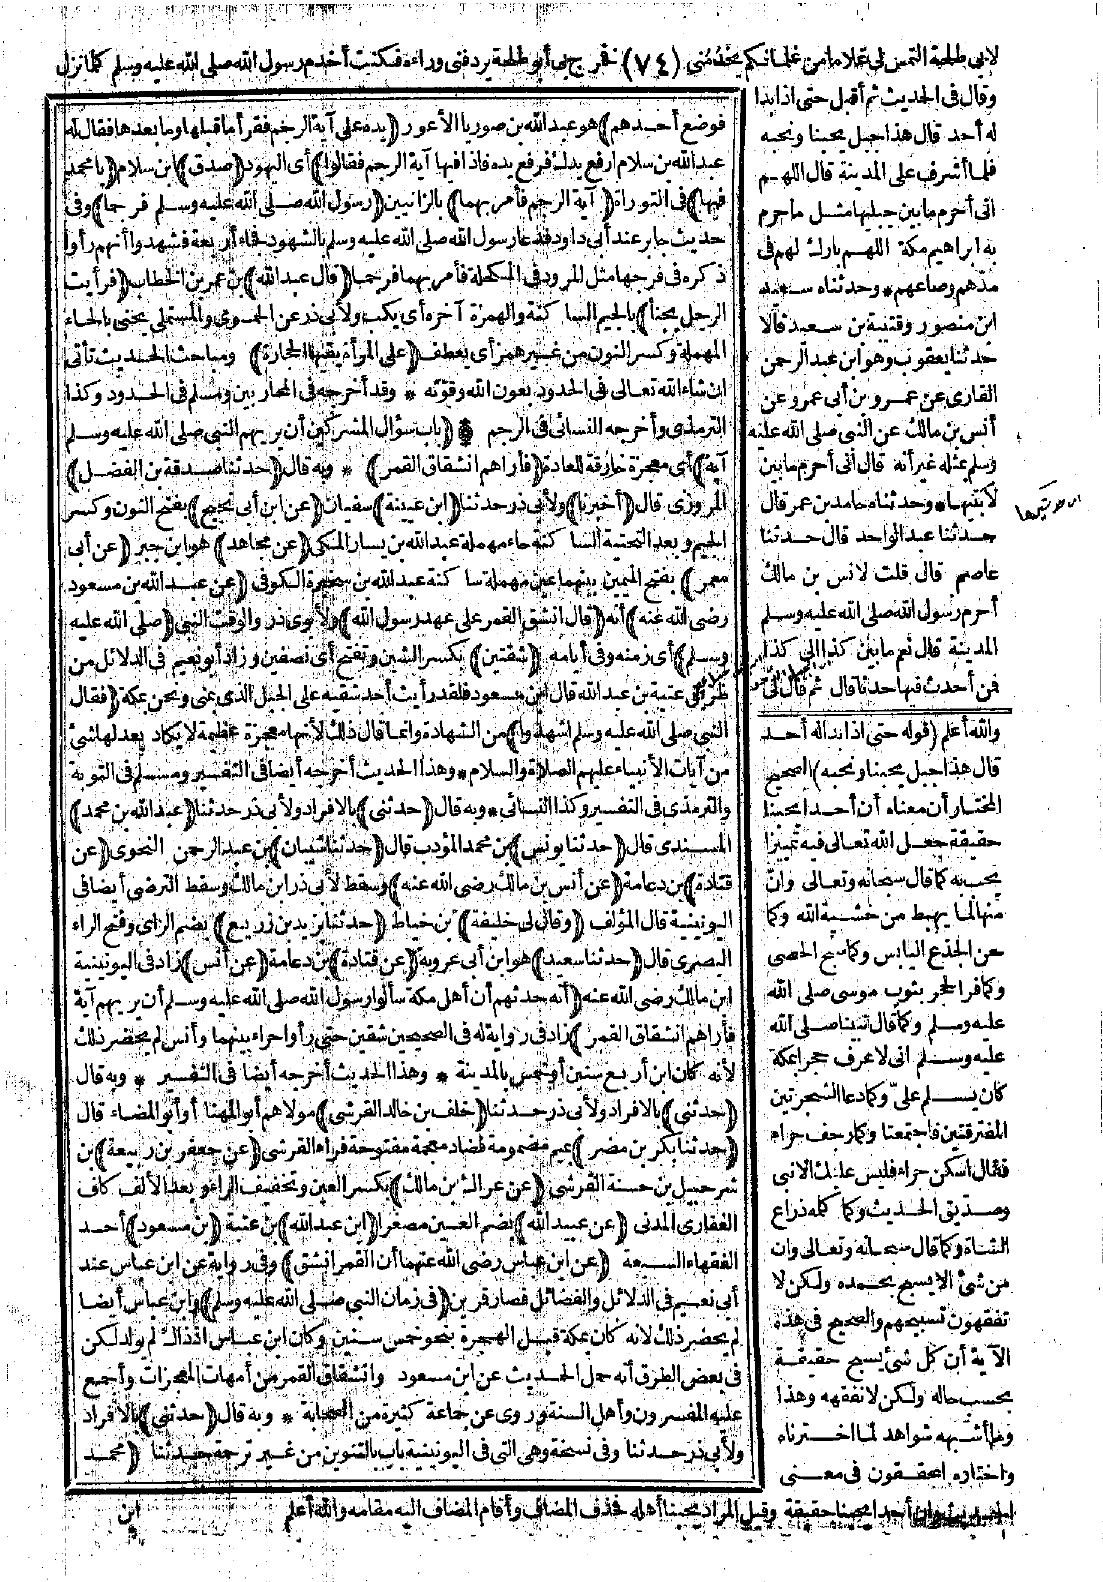 لابي طلحة التمس لي غلاما من غلمانكم يخدمني (٧٤) فخرج بي أبو طلحة يردفني وراءه فكنت أخدم رسول الله صلى الله عليه وسلم كلما نزل
وقال في الحديث ثم أقبل حتى اذا بدا
له أحد قال هذا جبل يحبنا ونحبه
فلما أشرف على المدينة قال اللهم
اني أحرم ما بين جبليها مثل ما حرم
به ابراهيم مكة اللهم بارك لهم في
مدهم وصاعهم * وحدثناه سعيد
ابن منصور وقتيبة بن سعيد قالا
حدثنا يعقوب وهو ابن عبد الرحمن
القاري عن عمرو بن أبي عمرو عن
أنس بن مالك عن النبي صلى الله عليه
وسلم بمثله غير أنه قال اني أحرم ما بين
لابتيها * وحدثناه حامد بن عمر قال
حدثنا عبد الواحد قال حدثنا
عاصم قال قلت لانس بن مالك
أحرم رسول الله صلى الله عليه وسلم
المدينة قال نعم ما بين كذا الى كذا
فمن أحدث فيها حدثا قال ثم قال لي
والله أعلم (قوله حتى اذا بدا له أحد
قال هذا جبل يحبنا ونحبه) الصحيح
المختار أن معناه أن أحدا يحبنا
حقيقة جعل الله تعالى فيه تمييزا
يحب به كما قال سبحانه وتعالى وان
منها لما يهبط من خشية الله وكما
حن الجذع اليابس وكما سبح الحصى
وكما فر الحجر بثوب موسى صلى الله
عليه وسلم وكما قال نبينا صلى الله
عليه وسلم اني لاعرف حجرا بمكة
كان يسلم علي وكما دعا الشجرتين
المفترقتين فاجتمعتا وكما رجف حراء
فقال اسكن حراء فليس عليك الا نبي
وصديق الحديث وكما كلمه ذراع
الشاة وكما قال سبحانه وتعالى وان
من شئ الا يسبح بحمده ولكن لا
تفقهون تسبيحهم والصحيح في هذه
الآية أن كل شئ يسبح حقيقة
بحسب حاله ولكن لا نفقهه وهذا
وما أشبهه شواهد لما اخترناه
واختاره المحققون في معنى
الحديث وان أحدا يحبنا حقيقة وقيل المراد يحبنا أهله فحذف المضاف وأقام المضاف اليه مقامه والله أعلم
فوضع أحدهم) هو عبد الله بن صوريا الأعور (يده على آية الرجم فقرأ ما قبلها وما بعدها فقال له
عبد الله بن سلام ارفع يدك فرفع يده فاذا فيها آية الرجم فقالوا) أي اليهود (صدق) ابن سلام (يا محمد
فيها) في التوراة (آية الرجم فأمر بهما) بالزانيين (رسول الله صلى الله عليه وسلم فرجما) وفي
حديث جابر عند أبي داود فدعا رسول الله صلى الله عليه وسلم بالشهود فجاء أربعة فشهدوا أنهم رأوا
ذكره في فرجها مثل المرود في المكحلة فأمر بهما فرجما (قال عبد الله) بن عمر بن الخطاب (فرأيت
الرجل يجنأ) بالجيم الساكنة والهمزة آخره أي يكب ولأبي ذر عن الحموي والمستملي يحني بالحاء
المهملة وكسر النون من غير همز أي يعطف (على المرأة يقيها الحجارة) ومباحث الحديث تأتي
ان شاء الله تعالى في الحدود بعون الله وقوته * وقد أخرجه في المحاربين ومسلم في الحدود وكذا
الترمذي وأخرجه النسائي في الرجم * (باب سؤال المشركين أن يريهم النبي صلى الله عليه وسلم
آية) أي معجزة خارقة للعادة (فأراهم انشقاق القمر) * وبه قال (حدثنا صدقة بن الفضل)
المروزي قال (أخبرنا) ولأبي ذر حدثنا (ابن عيينة) سفيان (عن ابن أبي نجيح) بفتح النون وكسر
الجيم وبعد التحتية الساكنة حاء مهملة عبد الله بن يسار المكي (عن مجاهد) هو ابن جبر (عن أبي
معمر) بفتح الميمين بينهما عين مهملة ساكنة عبد الله بن سخبرة الكوفي (عن عبد الله بن مسعود
رضي الله عنه) أنه (قال انشق القمر على عهد رسول الله) ولأبوي ذر والوقت النبي (صلى الله عليه
وسلم) أي زمنه وفي أيامه (شقتين) بكسر الشين وتفتح أي نصفين وزاد أبو نعيم في الدلائل من
طريق عتبة بن عبد الله قال ابن مسعود فلقد رأيت أحد شقيه على الجبل الذي بمنى ونحن بمكة (فقال
النبي صلى الله عليه وسلم اشهدوا) من الشهادة وانما قال ذلك لأنها معجزة عظيمة لا يكاد يعد لها شئ
من آيات الأنبياء عليهم الصلاة والسلام * وهذا الحديث أخرجه أيضا في التفسير ومسلم في التوبة
والترمذي في التفسير وكذا النسائي * وبه قال (حدثني) بالافراد ولأبي ذر حدثنا (عبد الله بن محمد)
المسندي قال (حدثنا يونس) بن محمد المؤدب قال (حدثنا شيبان) بن عبد الرحمن النحوي (عن
قتادة) بن دعامة (عن أنس بن مالك رضي الله عنه) وسقط لأبي ذر ابن مالك وسقط الترضي أيضا في
اليونينية قال المؤلف (وقال لي خليفة) بن خياط (حدثنا يزيد بن زريع) بضم الزاي وفتح الراء
البصري قال (حدثنا سعيد) هو ابن أبي عروبة (عن قتادة) بن دعامة (عن أنس) زاد في اليونينية
ابن مالك رضي الله عنه (أنه حدثهم أن أهل مكة سألوا رسول الله صلى الله عليه وسلم أن يريهم آية
فأراهم انشقاق القمر) زاد في رواية له في الصحيحين شقين حتى رأوا حراء بينهما وأنس لم يحضر ذلك
لأنه كان ابن أربع سنين أو خمس بالمدينة * وهذا الحديث أخرجه أيضا في التفسير * وبه قال
(حدثني) بالافراد ولأبي ذر حدثنا (خلف بن خالد القرشي) مولاهم أبو المهنا أو أبو المضاء قال
(حدثنا بكر بن مضر) بميم مضمومة فضاد معجمة مفتوحة فراء القرشي (عن جعفر بن ربيعة) بن
شرحبيل بن حسنة القرشي (عن عراك بن مالك) بكسر العين وتخفيف الراء وبعد الألف كاف
الغفاري المدني (عن عبيد الله) بضم العين مصغرا (ابن عبد الله) بن عتبة (بن مسعود) أحد
الفقهاء السبعة (عن ابن عباس رضي الله عنهما أن القمر انشق) وفي رواية عن ابن عباس عند
أبي نعيم في الدلائل والفضائل فصار قمرين (في زمان النبي صلى الله عليه وسلم) وابن عباس أيضا
لم يحضر ذلك لانه كان بمكة قبل الهجرة بنحو خمس سنين وكان ابن عباس اذ ذاك لم يولد لكن
في بعض الطرق أنه حمل الحديث عن ابن مسعود وانشقاق القمر من أمهات المعجزات وأجمع
عليه المفسرون وأهل السنة وروي عن جماعة كثيرة من الصحابة * وبه قال (حدثني) بالافراد
ولأبي ذر حدثنا وفي نسخة وهي التي في اليونينية باب بالتنوين من غير ترجمة حدثنا (محمد
ابن